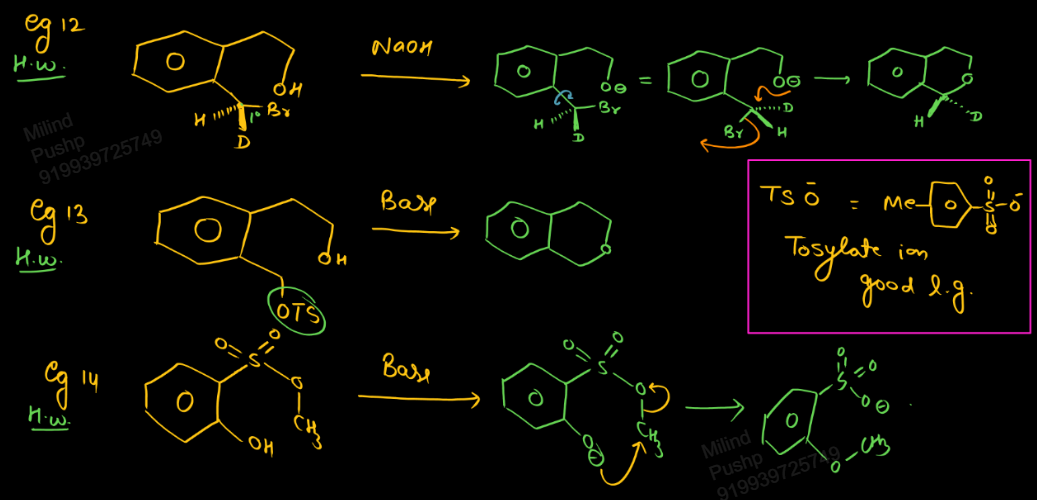 Eg 12
H.w.
OH
Br
1°
H
D
NaOH
O⊖
Br
H
D
=
O⊖
D
Br
H
O
H
D
Milind
Pushp
919939725749
Eg 13
H.w.
OH
OTS
Base
O
TSO⁻ = Me-S-O⁻
O
O
Tosylate ion
good l.g.
Eg 14
H.w.
O
O
S
O
CH3
OH
Base
O
O
S
O
CH3
O
⊖
O
O
S
O⊖
O
CH3
Milind
Pushp
919939725749